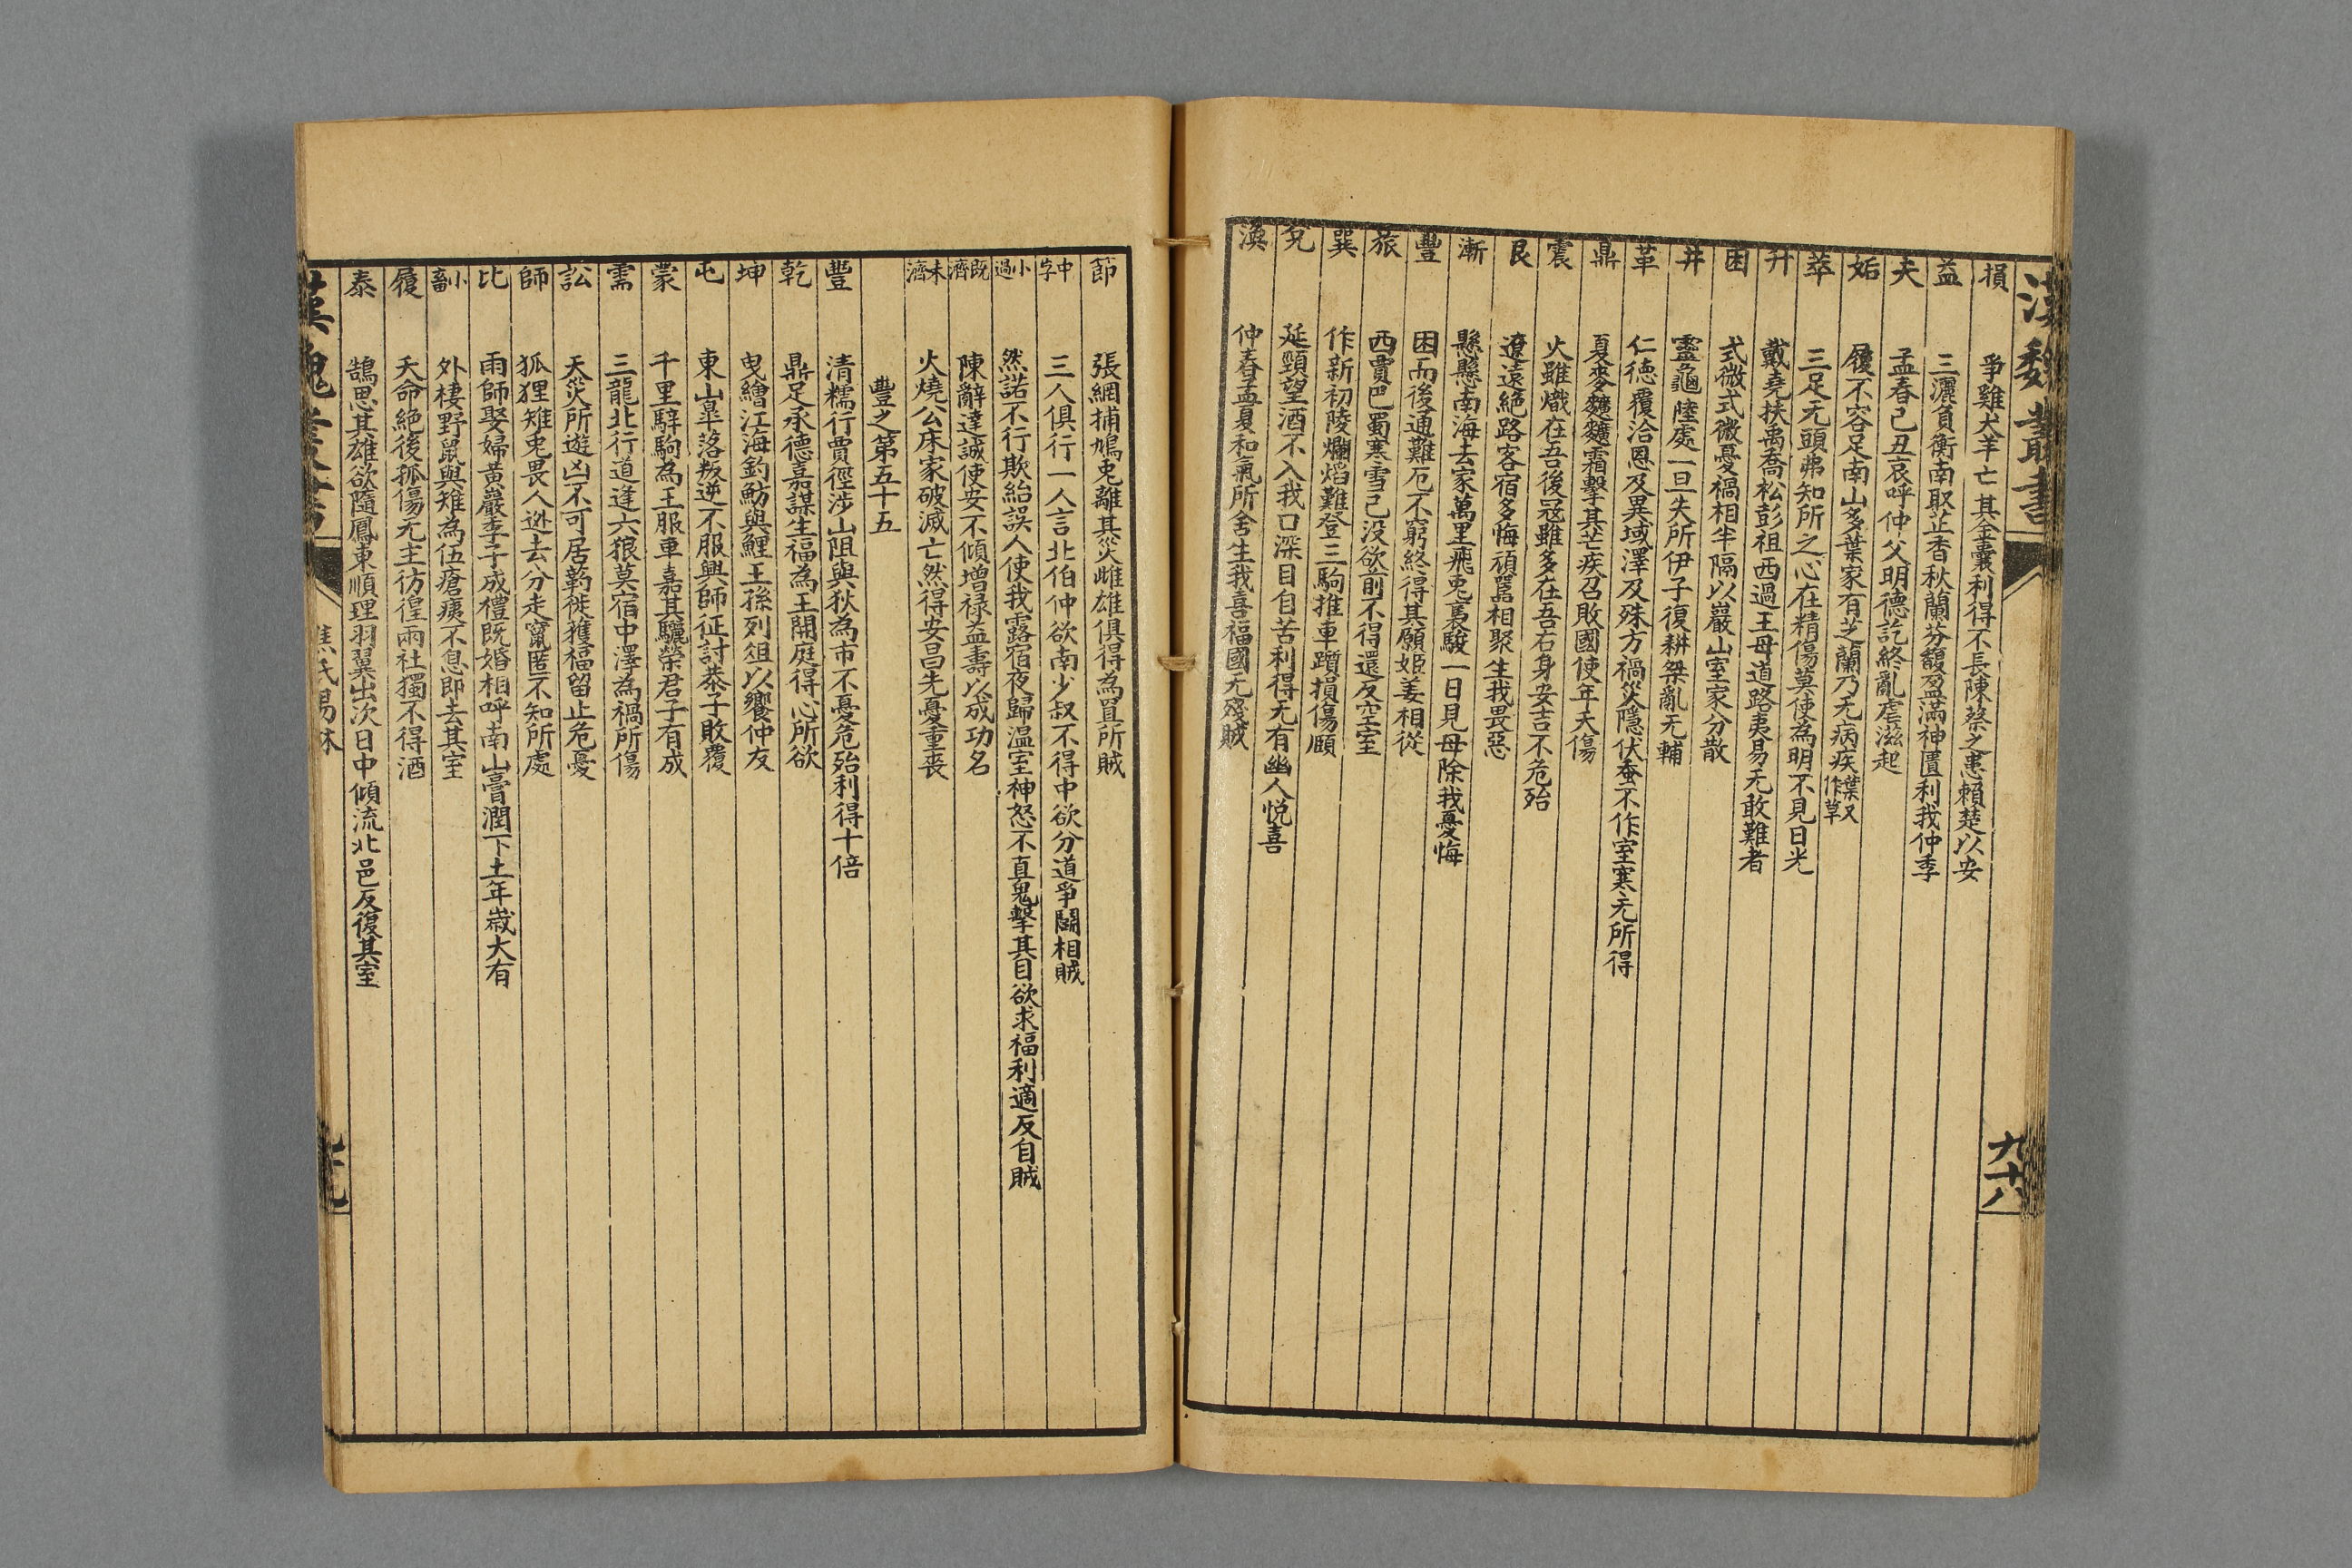 漢魏叢書
九十八
損 爭雞失羊亡其金囊利得不長陳蔡之患賴楚以安
益 三灑負衡南取芷香秋蘭芬馥盈滿神匱利我仲季
夬 孟春己丑哀呼仲父明德訖終亂虐滋起
姤 履不容足南山多葉家有芝蘭乃无病疾葉又作草
萃 三足无頭弗知所之心在精傷莫使為明不見日光
升 戴堯扶禹喬松彭祖西過王母道路夷易无敢難者
困 式微式微憂禍相半隔以巖山室家分散
井 靈龜陸處一旦失所伊子復耕桀亂无輔
革 仁德覆洽恩及異域澤及殊方禍災隱伏蚕不作室寒无所得
鼎 夏麥䴬䵃霜擊其芒疾召敗國使年夭傷
震 火雖熾在吾後寇雖多在吾右身安吉不危殆
艮 遼遠絕路客宿多悔頑嚚相聚生我畏惡
漸 懸懸南海去家萬里飛兎褭駿一日見母除我憂悔
豐 困而後通難厄不窮終得其願姬姜相從
旅 西賈巴蜀寒雪已没欲前不得還反空室
巽 作新初陵爛熖難登三駒推車躓損傷頤
兌 延頸望酒不入我口深目自苦利得无有幽人悦喜
渙 仲春孟夏和氣所舍生我喜福國无殘賊
節 張網捕鳩兎離其災雌雄俱得為罝所賊
中孚 三人俱行一人言北伯仲欲南少叔不得中欲分道爭鬭相賊
小過 然諾不行欺紿誤人使我露宿夜歸溫室神怒不直鬼擊其目欲求福利適反自賊
既濟 陳辭達誠使安不傾增禄益壽以成功名
未濟 火燒公床家破滅亡然得安昌先憂重喪
豐之第五十五
豐 清糯行賈徑涉山阻與狄為市不憂危殆利得十倍
乾 鼎足承德嘉謀生福為王開庭得心所欲
坤 曳繒江海釣魴與鯉王孫列俎以饗仲友
屯 東山臯落叛逆不服興師征討恭子敗覆
蒙 千里騂駒為王服車嘉其驪榮君子有成
需 三龍北行道逢六狼莫宿中澤為禍所傷
訟 天災所遊凶不可居轉徙獲福留止危憂
師 狐狸雉兎畏人逃去分走竄匿不知所處
比 雨師娶婦黄巖季子成禮既婚相呼南山膏潤下土年嵗大有
小畜 外棲野鼠與雉為伍瘡痍不息即去其室
履 天命絕後孤傷无主彷徨兩社獨不得酒
泰 鵠思其雄欲隨鳳東順理羽翼出次日中傾流北邑反復其室
焦氏易林